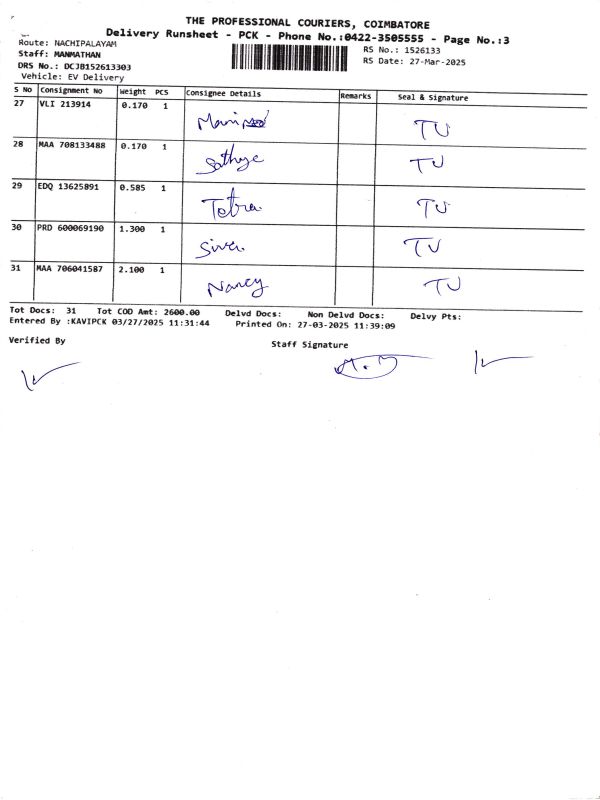 THE PROFESSIONAL COURIERS, COIMBATORE
Delivery Runsheet - PCK - Phone No.:0422-3505555 - Page No.:3
Route: NACHIPALAYAM
RS No.: 1526133
Staff: MANMATHAN
RS Date: 27-Mar-2025
DRS No.: DCJB152613303
Vehicle: EV Delivery
S No Consignment No Weight PCS Consignee Details Remarks Seal & Signature
27 VLI 213914 0.170 1 TU
28 MAA 708133488 0.170 1 Sathya TU
29 EDQ 13625891 0.585 1 Tetra TU
30 PRD 600069190 1.300 1 Siva TU
31 MAA 706041587 2.100 1 Nancy TU
Tot Docs: 31 Tot COD Amt: 2600.00 Delvd Docs: Non Delvd Docs: Delvy Pts:
Entered By :KAVIPCK 03/27/2025 11:31:44 Printed On: 27-03-2025 11:39:09
Verified By Staff Signature